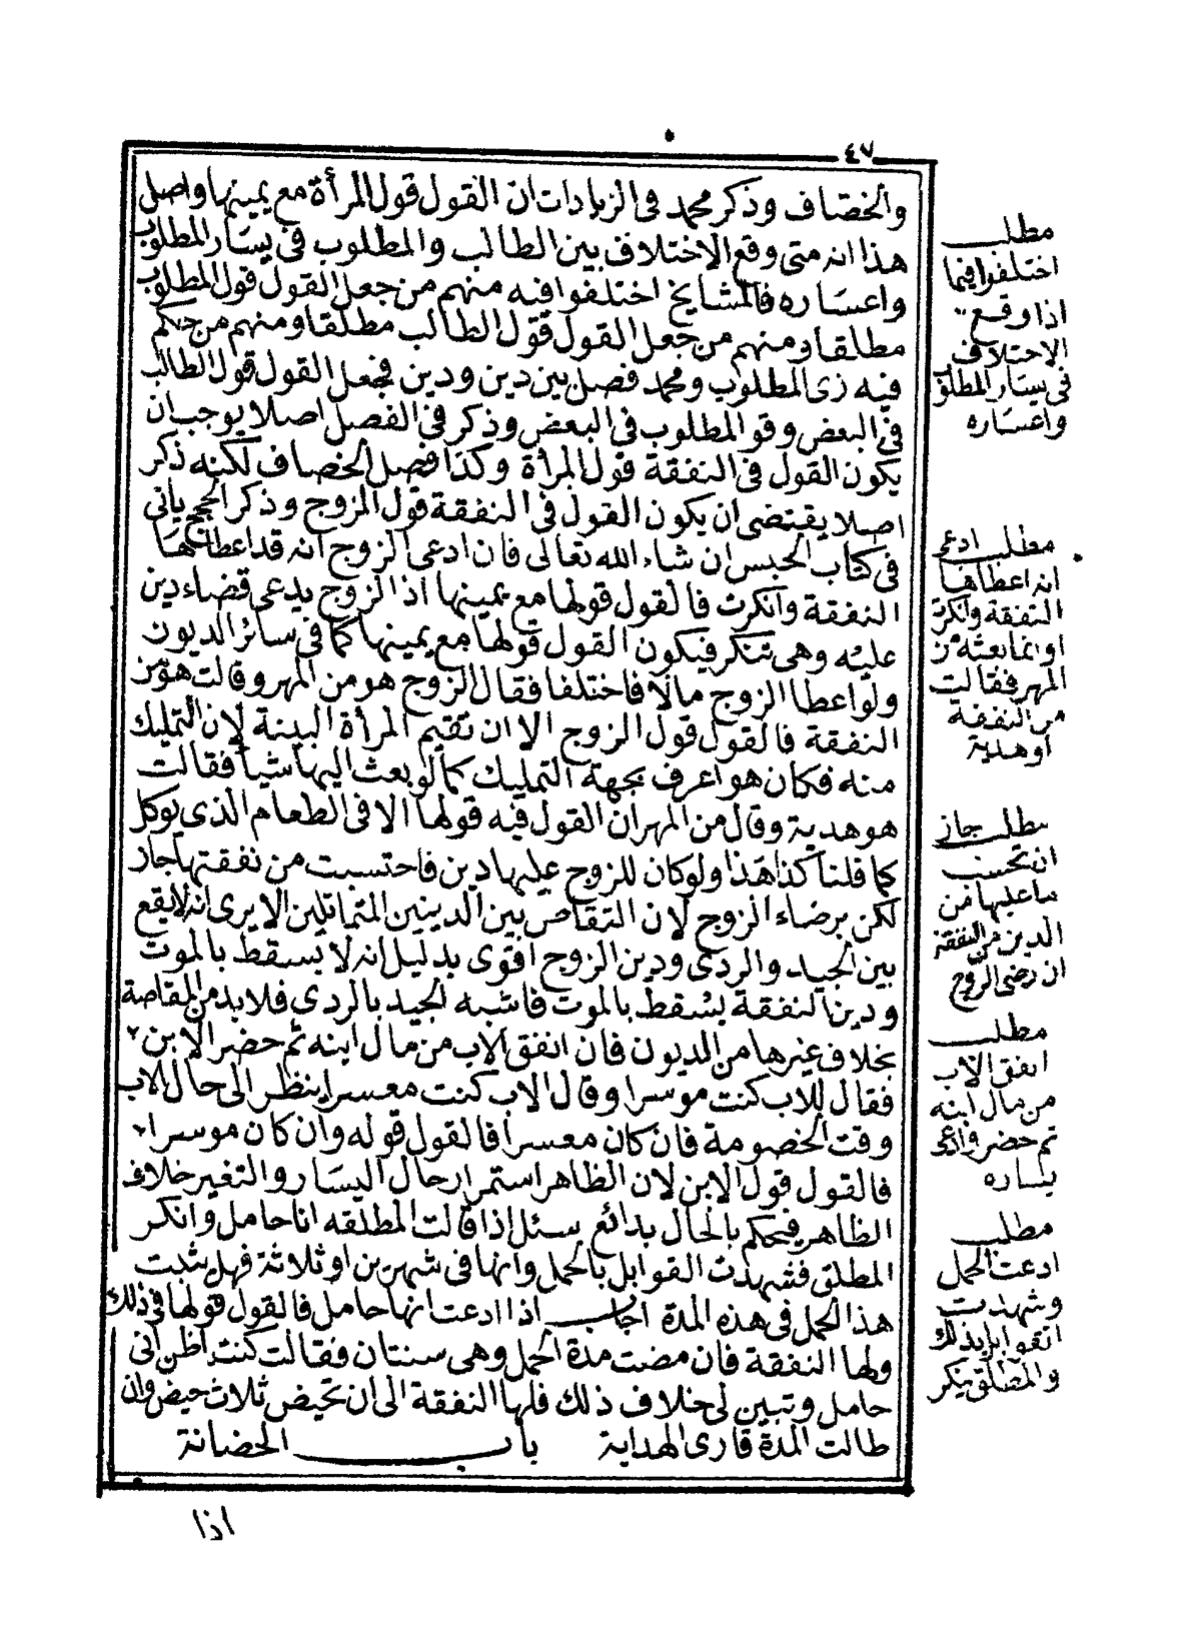 ٤٧
والخصاف وذكر محمد فى الزيادات ان القول قول المرأة مع يمينها واصل
هذا انه متى وقع الاختلاف بين الطالب والمطلوب فى يسار المطلوب
واعساره فالمشايخ اختلفوا فيه منهم من جعل القول قول المطلوب
مطلقا ومنهم من جعل القول قول الطالب مطلقا ومنهم من حكم
فيه زى المطلوب ومحمد فصل بين دين ودين فجعل القول قول الطالب
فى البعض وقو المطلوب فى البعض وذكر فى الفصل اصلا يوجب ان
يكون القول فى النفقة قول المرأة وكذا فصل الخصاف لكنه ذكر
اصلا يقتضى ان يكون القول فى النفقة قول الزوج وذكر الحجج يأتى
فى كتاب الحبس ان شاء الله تعالى فان ادعى الزوج انه قد اعطاها
النفقة وانكرت فالقول قولها مع يمينها اذ الزوج يدعى قضاء دين
عليه وهى تنكر فيكون القول قولها مع يمينها كما فى سائر الديون
ولو اعطا الزوج مالا فاختلفا فقال الزوج هو من المهر وقالت هو من
النفقة فالقول قول الزوج الا ان تقيم المرأة البينة لان التمليك
منه فكان هو اعرف بجهة التمليك كما لو بعث اليها شيأ فقالت
هو هدية وقال من المهر ان القول فيه قولها الا فى الطعام الذى يوكل
كما قلنا كذا هذا ولو كان للزوج عليها دين فاحتسبت من نفقتها جاز
لكن برضاء الزوج لان التقاص بين الدينين المتماثلين الا يرى انه لا يقع
بين الجيد والردى ودين الزوج اقوى بدليل انه لا يسقط بالموت
ودين النفقة يسقط بالموت فاشبه الجيد بالردى فلا بد من المقاصة
بخلاف غيرها من المديون فان انفق الاب من مال ابنه ثم حضر الابن
فقال للاب كنت موسرا وقال الاب كنت معسرا ينظر الى حال الاب
وقت الخصومة فان كان معسرا فالقول قوله وان كان موسرا
فالقول قول الابن لان الظاهر استمرار حال اليسار والتغير خلاف
الظاهر فيحكم بالحال بدائع سئل اذا قالت المطلقه انا حامل وانكر
المطلق فشهدت القوابل بالحمل وانها فى شهرين او ثلاثة فهل يثبت
هذا الحمل فى هذه المدة اجاب اذا ادعت انها حامل فالقول قولها فى ذلك
ولها النفقة فان مضت مدة الحمل وهى سنتان فقالت كنت اظن انى
حامل وتبين لى خلاف ذلك فلها النفقة الى ان تحيض ثلاث حيض وان
طالت المدة قارى الهداية باب الحضانة
اذا
مطلب
اختلفوا فيما
اذا وقع
الاختلاف
فى يسار المطلوب
واعساره
مطلب ادعى
انه اعطاها
النفقة وانكرت
او بما بعثه من
المهر فقالت
من النفقة
او هدية
مطلب جاز
ان تحتسب
ما عليها من
الدين من النفقة
ان رضى الزوج
مطلب
انفق الاب
من مال ابنه
ثم حضر وادعى
يساره
مطلب
ادعت الحمل
وشهدت
القوابل بذلك
والمطلق ينكر